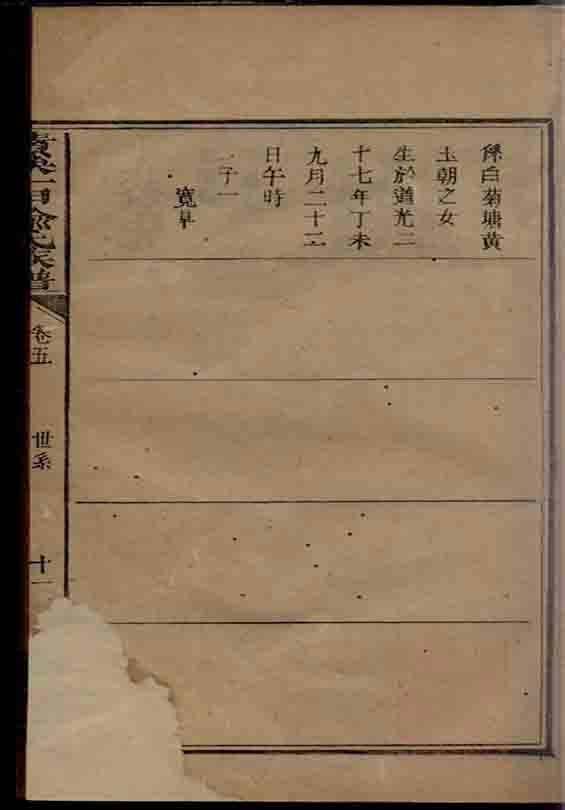 係白菊塘黄
玉朝之女
生於道光二
十七年丁未
九月二十二
日午時
子一
寬
俞氏宗譜
卷五
世系
十一